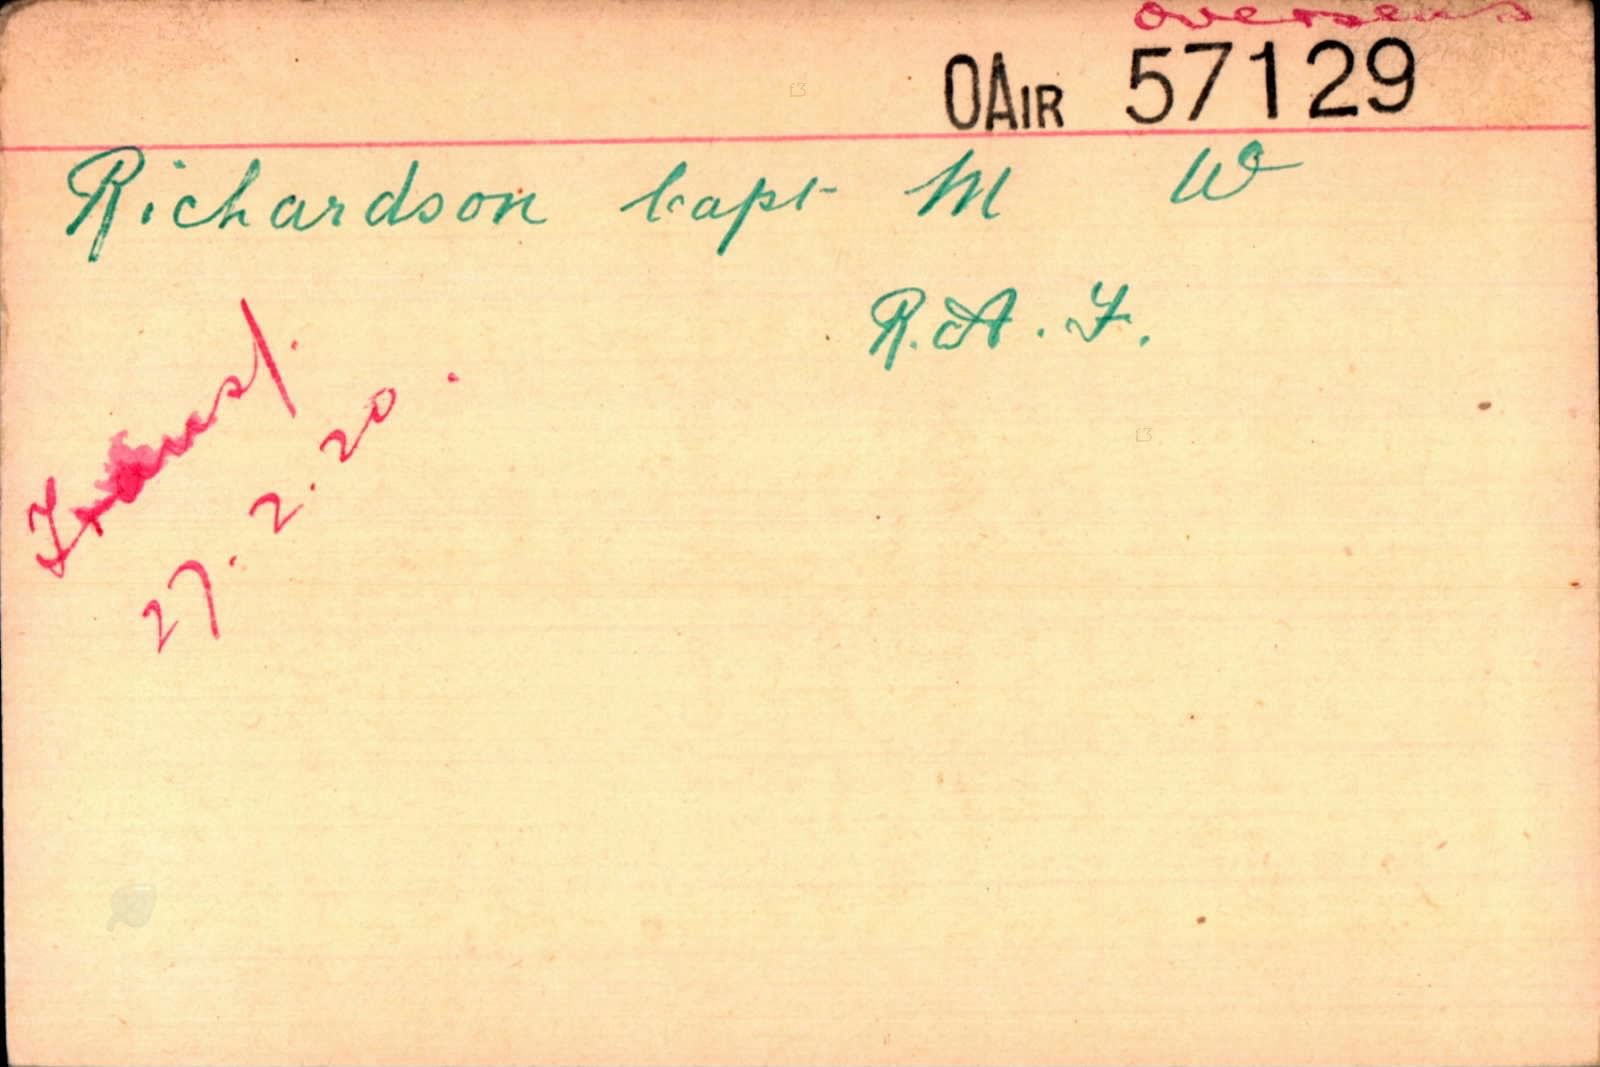 overseas
OAIR 57129
Richardson Capt M W
R.A.F.
Transf.
27.2.20.